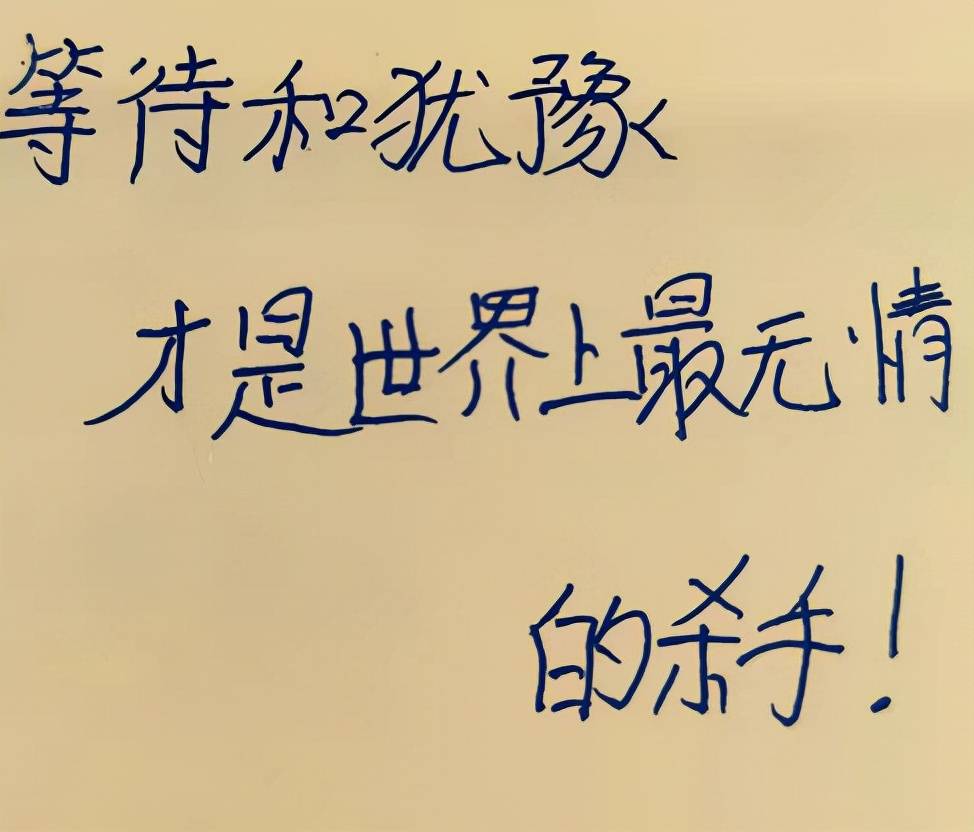 等待和犹豫
才是世界上最无情
的杀手！